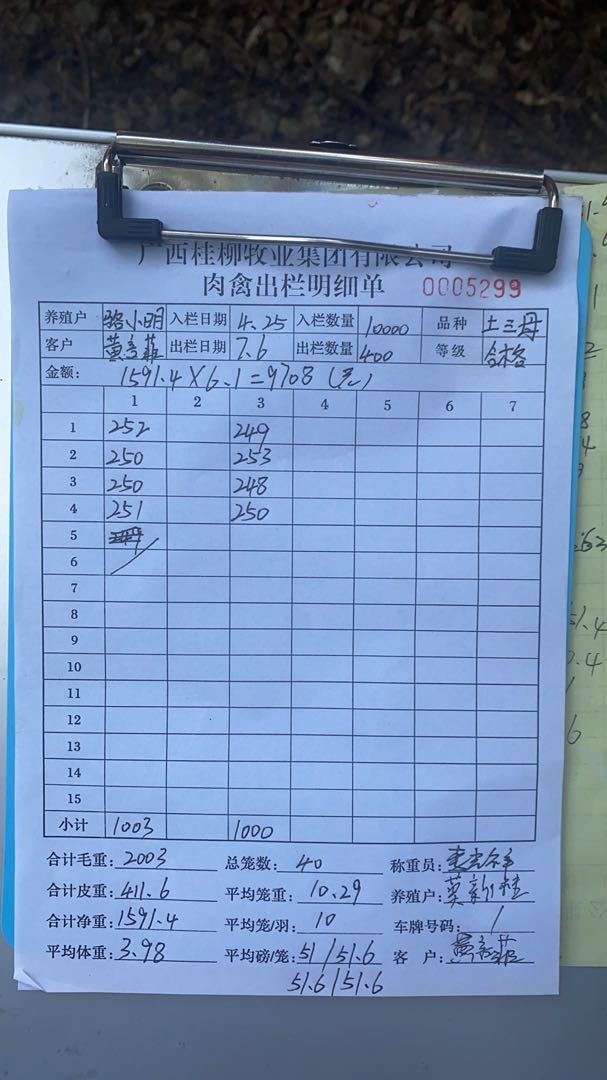 广西桂柳牧业集团有限公司
肉禽出栏明细单 0005299
养殖户 骆小明 入栏日期 4.25 入栏数量 10000 品种 土三母
客户 黄 出栏日期 7.6 出栏数量 400 等级 合格
金额: 1591.4×6.1=9708(元)
1 2 3 4 5 6 7
1 252 249
2 250 253
3 250 248
4 251 250
5
6
7
8
9
10
11
12
13
14
15
小计 1003 1000
合计毛重: 2003 总笼数: 40 称重员:
合计皮重: 411.6 平均笼重: 10.29 养殖户: 莫新
合计净重: 1591.4 平均笼/羽: 10 车牌号码: 1
平均体重: 3.98 平均磅/笼: 51/51.6 客 户: 黄
51.6/51.6